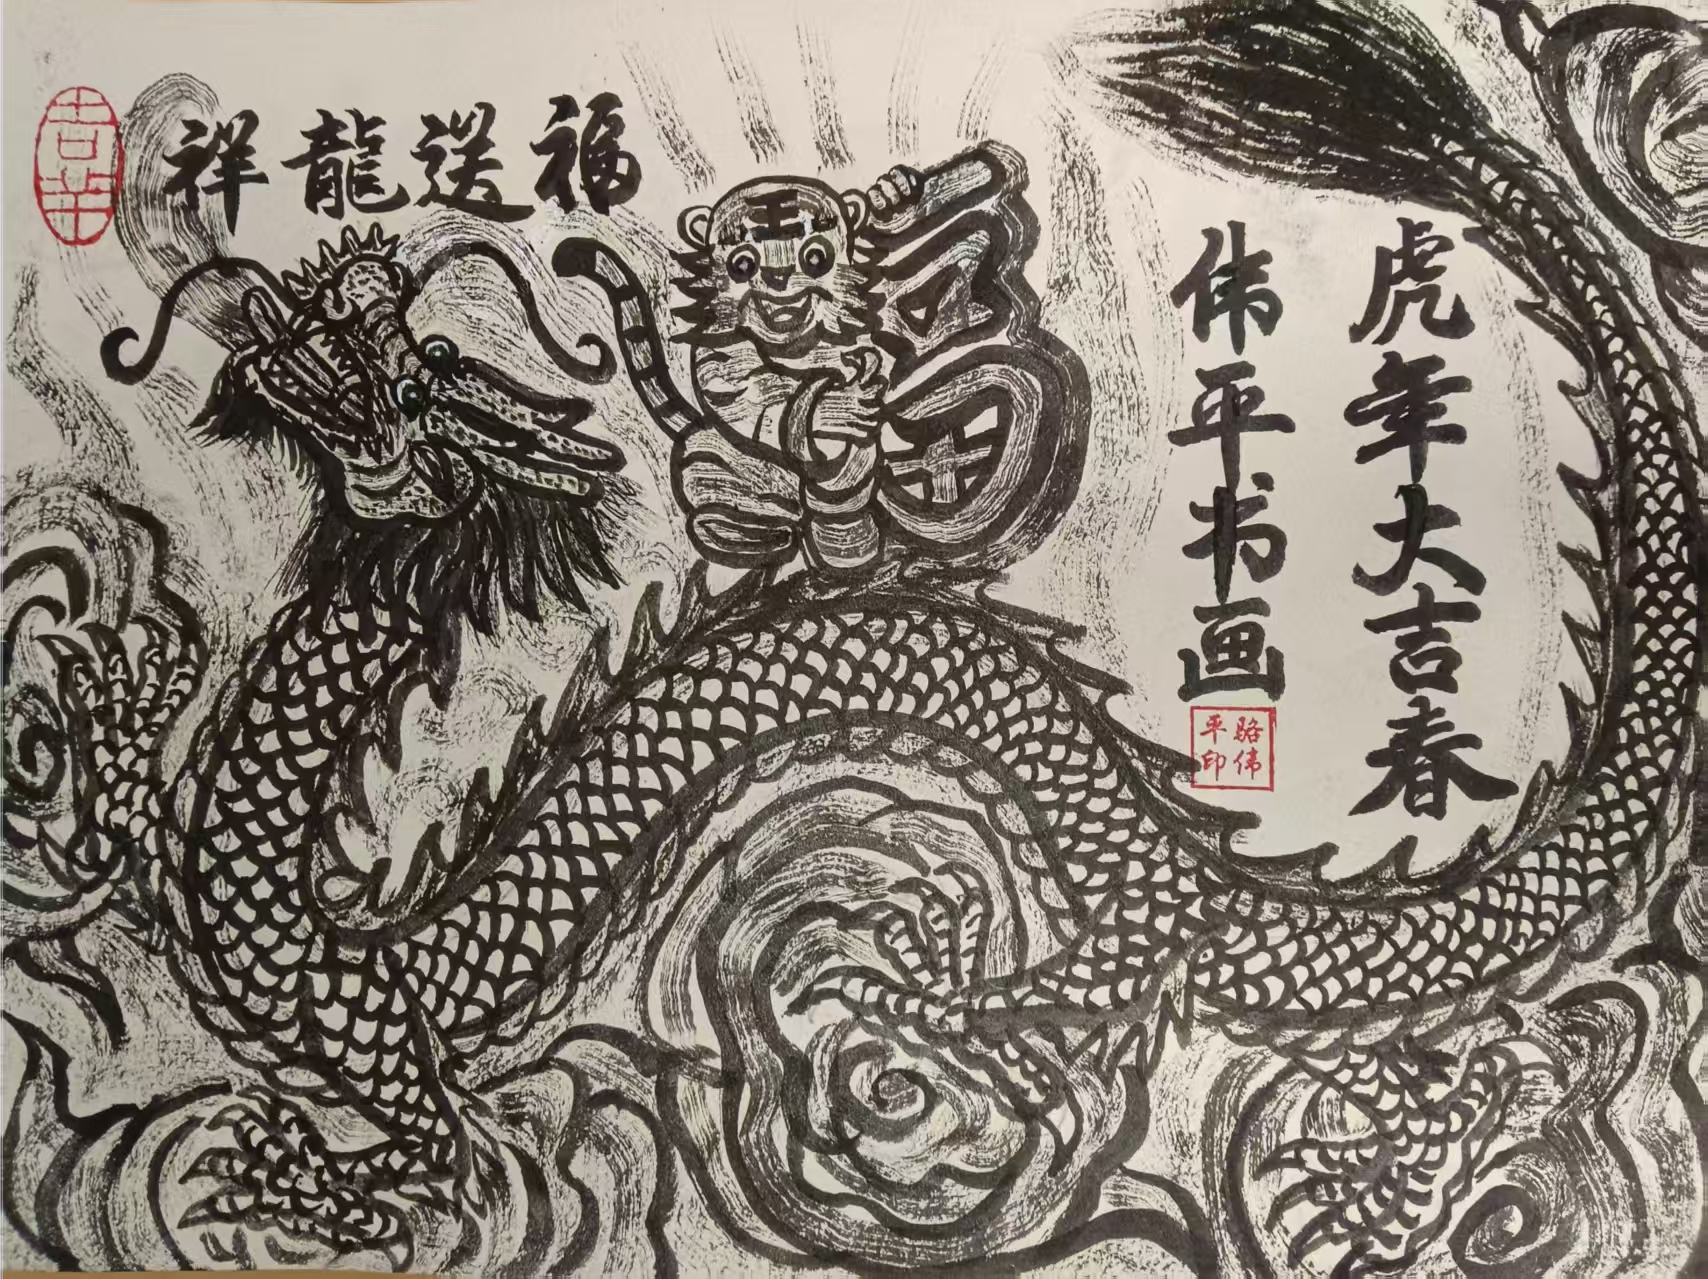 祥龍送福
王
福
虎年大吉春
伟平书画
骆伟
平印